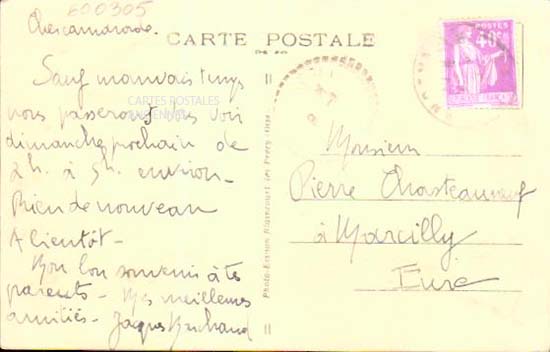 E00305
Cher camarade.
CARTE POSTALE
Sauf mauvais temps
nous passerons les voir
CARTES POSTALES
ANCIENNES
dimanche prochain de
2h. à 5h. environ -
Rien de nouveau
A bientôt -
Bon souvenir à tes
parents - Mes meilleures
amitiés - Jacques
POSTES
40c
Monsieur
Pierre Chasteauneuf
à Marcilly
Eure
Photo-Edition